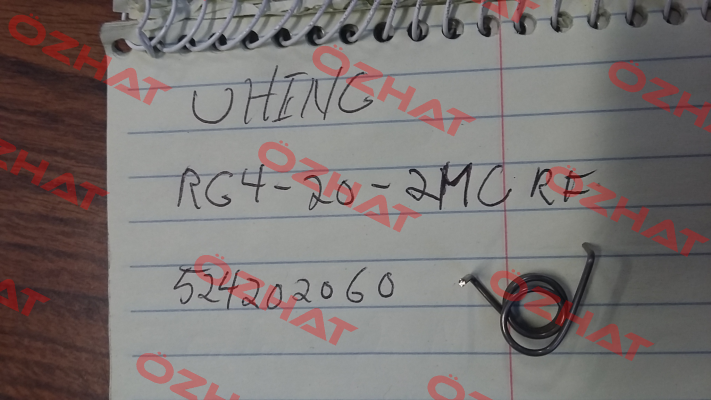 UHING
RG4-20-2MC RF
524202060
OZHAT
ÖZHAT
OZHAT
ÖZHAT
ÖZHAT
ÖZHAT
ÖZHAT
ÖZHAT
ÖZHAT
ÖZHAT